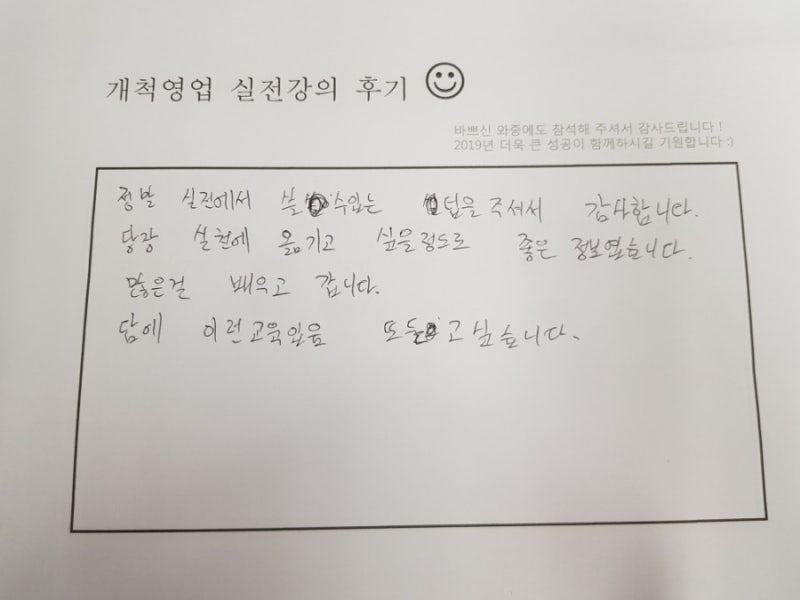 개척영업 실전강의 후기
바쁘신 와중에도 참석해 주셔서 감사드립니다 !
2019년 더욱 큰 성공이 함께하시길 기원합니다 :)
정말 실전에서 쓸 수있는 팁을 주셔서 감사합니다.
당장 실현에 옮기고 싶을정도로 좋은 정보였습니다.
많은걸 배우고 갑니다.
담에 이런교육있음 또듣고싶습니다.